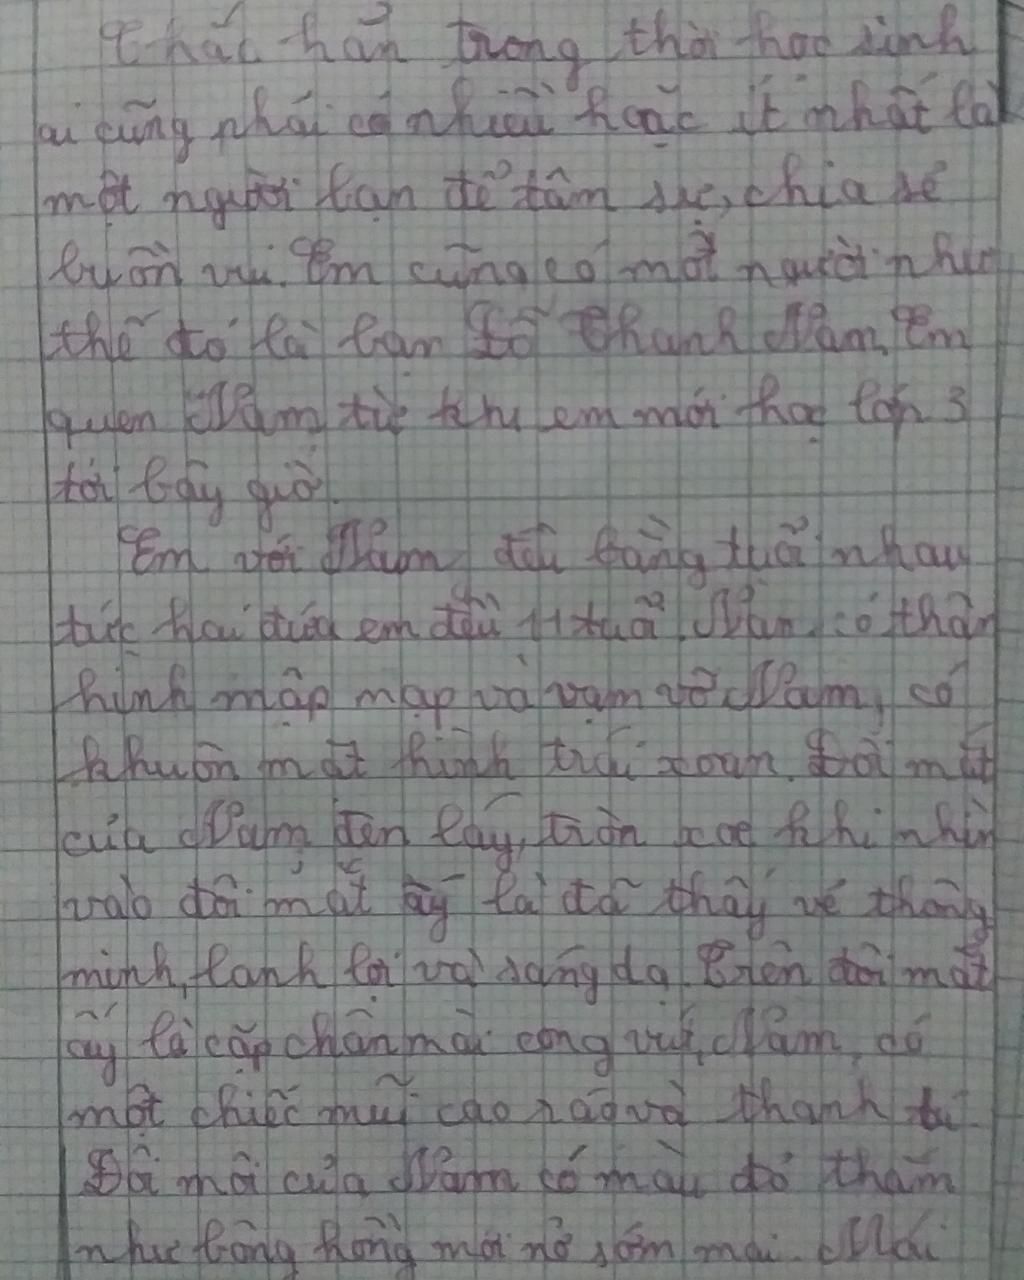 Chắc hẳn trong thời học sinh
ai cũng phải có nhiều hoặc ít nhất là
một người bạn để tâm sự, chia sẻ
buồn vui. Em cũng có một người như
thế đó là bạn Đỗ Thanh Nam. Em
quen Nam từ khi em mới học lớp 3
tới bây giờ.
Em với Nam đều bằng tuổi nhau
tức hai đứa em đều 11 tuổi. Nam có thân
hình mập mạp và vạm vỡ. Nam, có
khuôn mặt hình trái xoan. Đôi mắt
của Nam đen láy, tròn xoe khi nhìn
vào đôi mắt ấy là đã thấy vẻ thông
minh, lanh lợi và sáng dạ. Trên đôi mắt
ấy là cặp chân mài cong vút, Nam, có
một chiếc mũi cao ráo và thanh tú.
Đôi môi của Nam có màu đỏ thắm
như bông hồng mới nở sớm mai. Mái